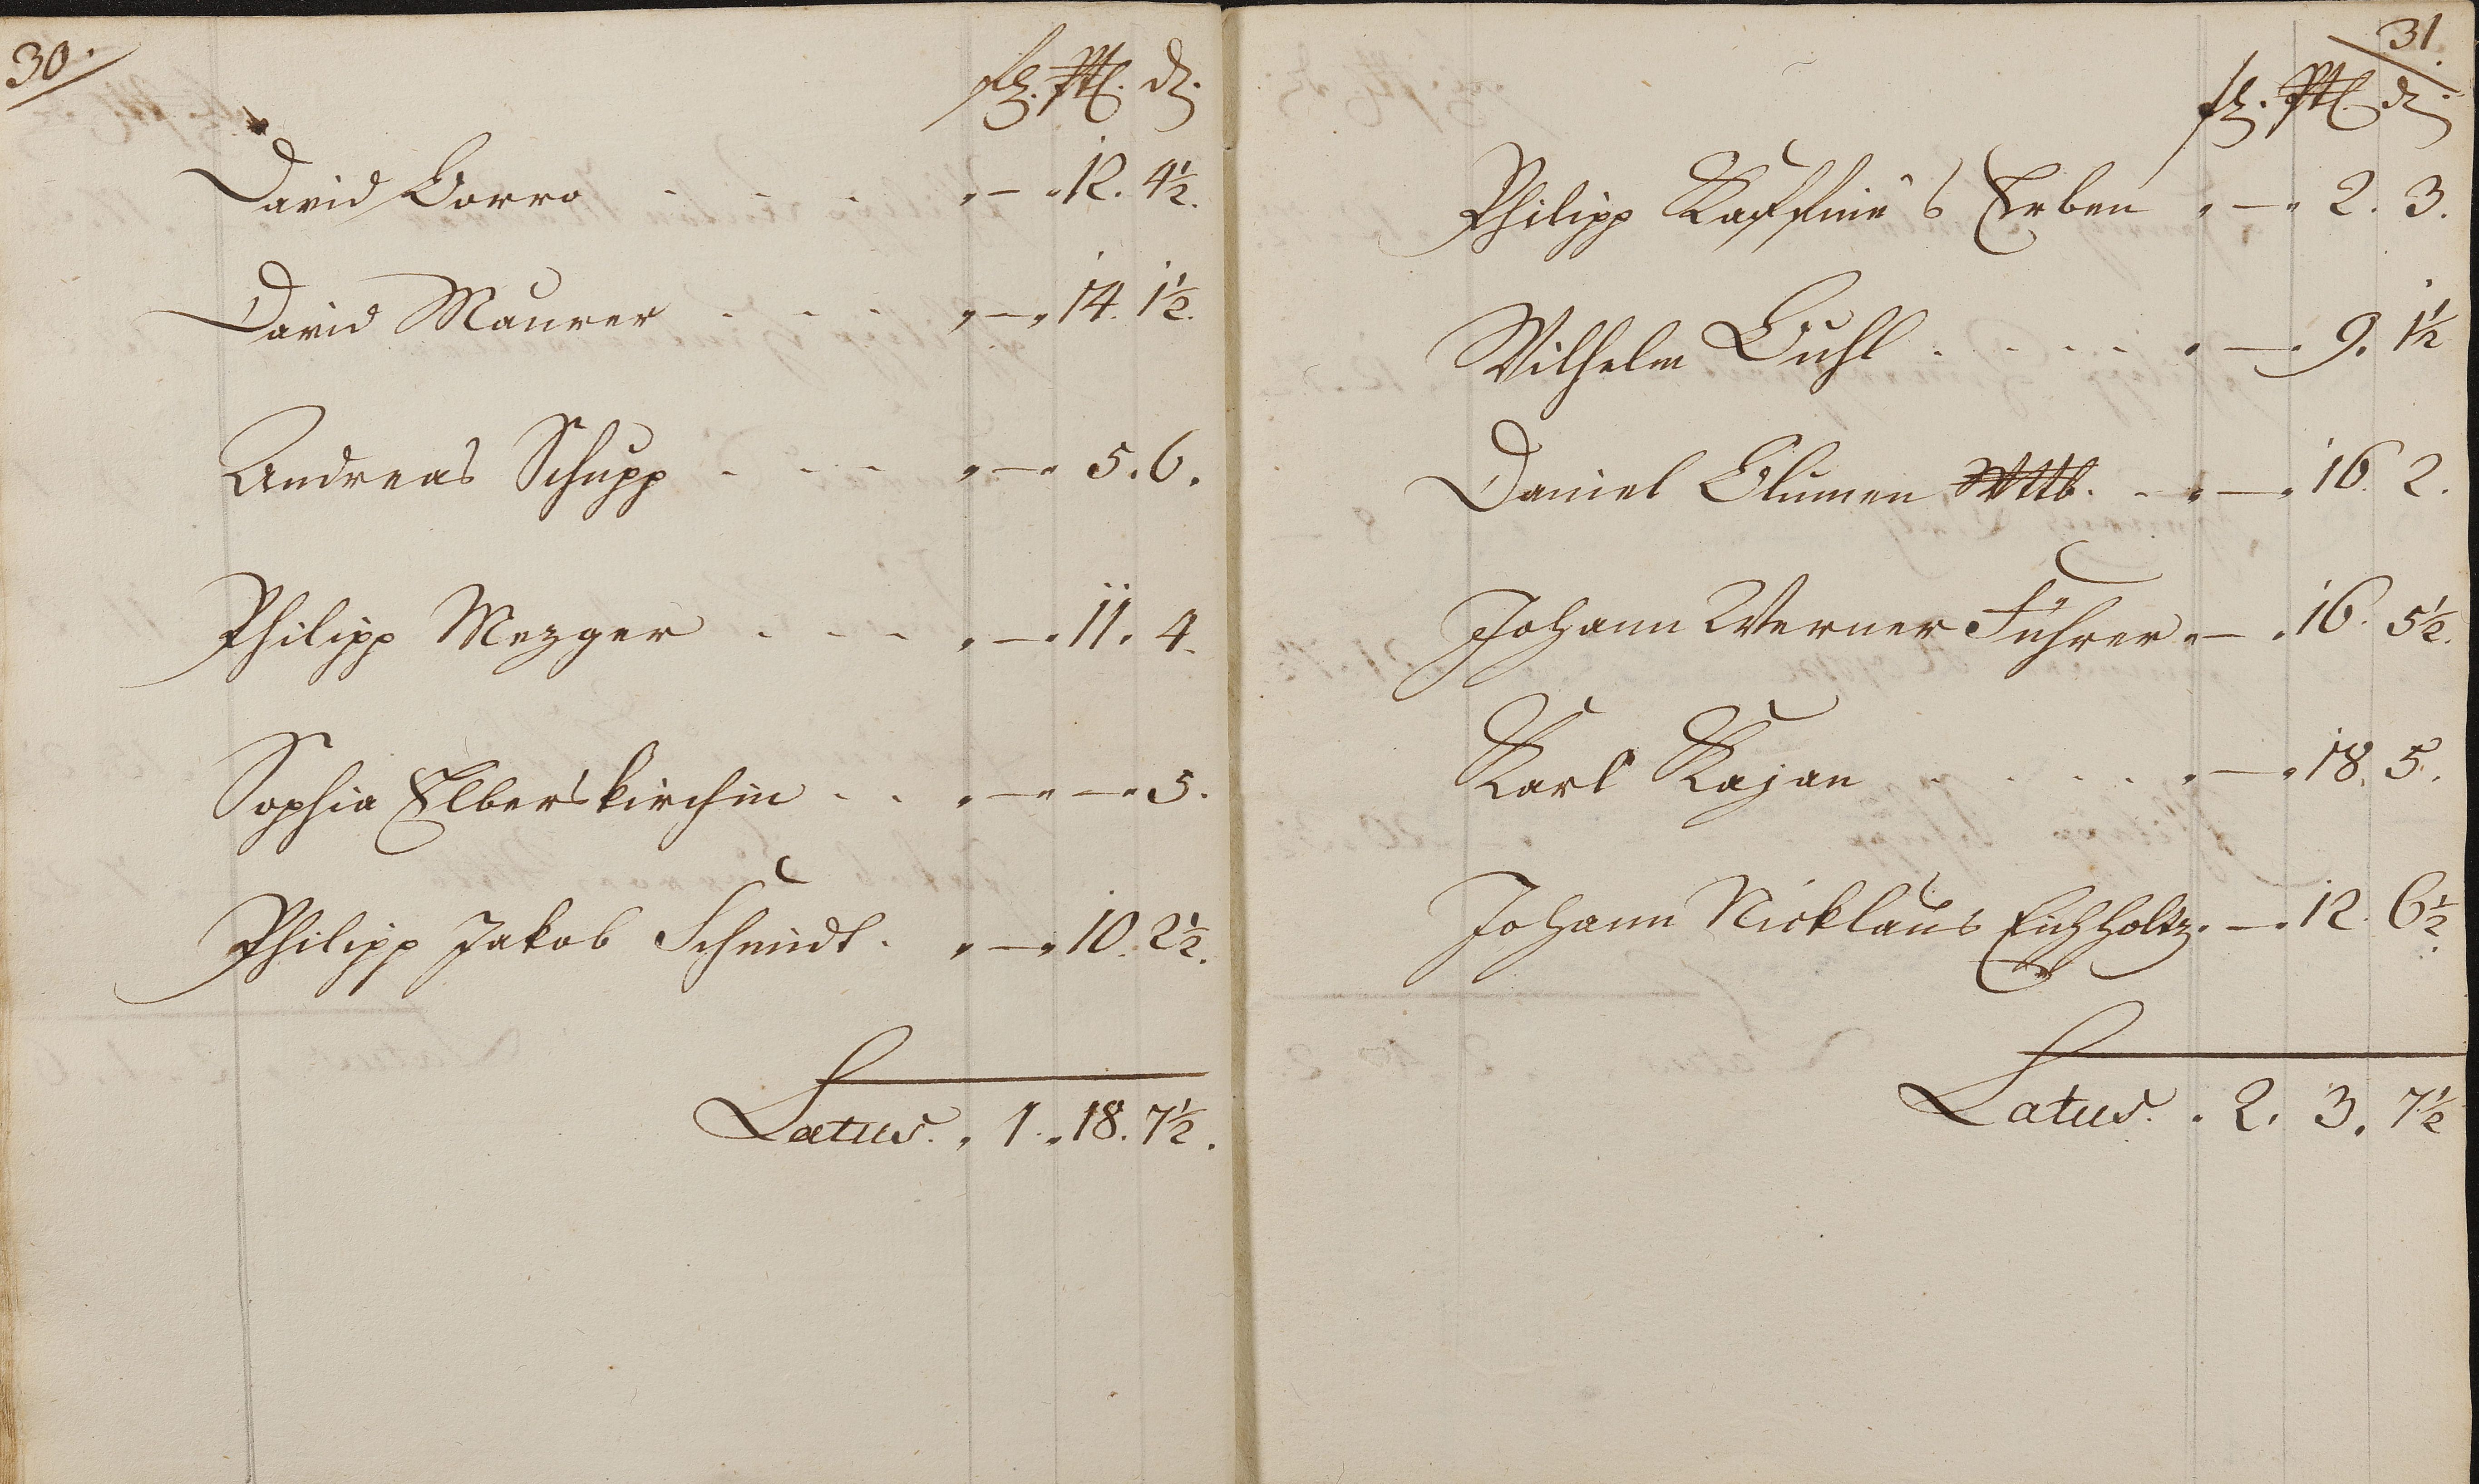 30.
fl. Btz. dz.
David Corro - - - " — " 12. 4½.
David Maurer - - - " — " 14. 1½.
Andreas Schupp - - - " — " 5. 6.
Philipp Mezger - - - " — " 11. 4.
Sophia Elberskirchin . . " — " — " 5.
Philipp Jakob Schmidt . " — " 10. 2½.
Latus. " 1. " 18. 7½.
31.
fl. Btz. dz.
Philipp Kaffine's Erben " — " 2. 3.
Wilhelm Buhl . - - - " — " 9. 1½
Daniel Blumen Wttb. - " — " 16. 2.
Johann Werner Führer " — " 16. 5½.
Karl Kajan - . . . " — " 18. 5.
Johann Nicklaus Eichholtz. — " 12. 6½.
Latus. " 2. 3. 7½